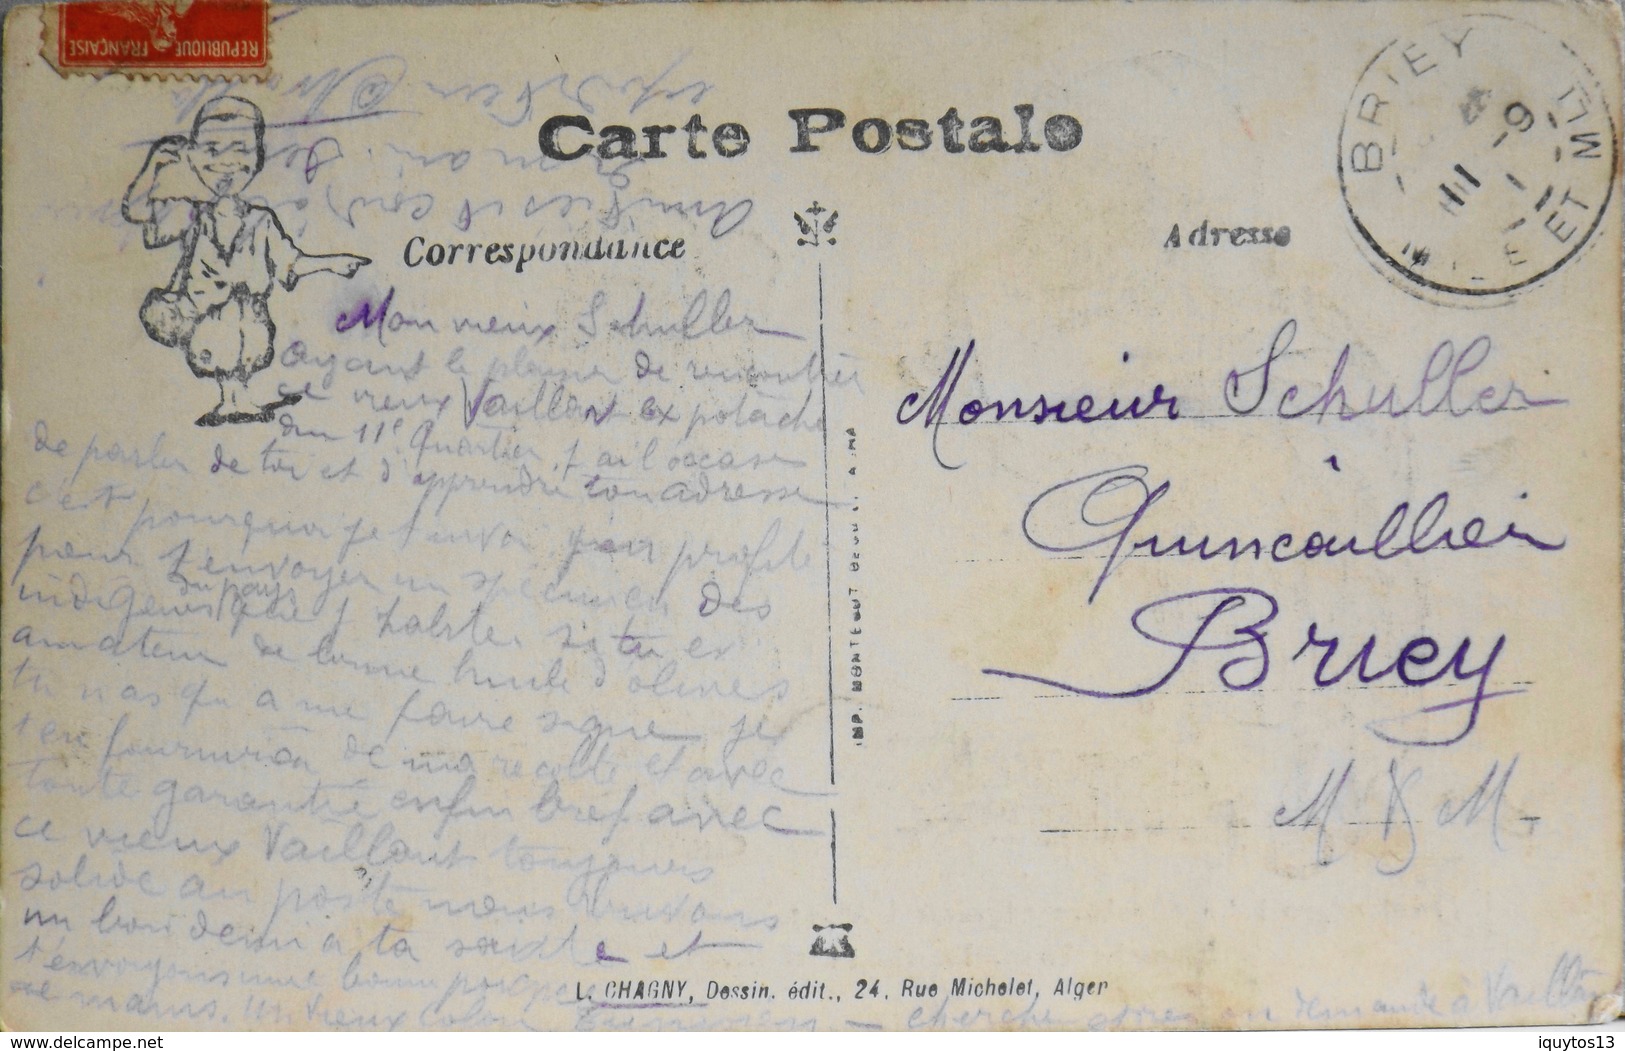 REPUBLIQUE FRANÇAISE
Carte Postale
BRIEY
11 -9
11
ET MLLE
Correspondance
Adresse
Mon vieux Schuller
Ayant le plaisir de rencontrer
ce vieux Vaillant ex potache
du 11e Quartier, j'ai l'occasion
de parler de toi et d'apprendre ton adresse
c'est pourquoi je profite
pour t'envoyer un specimen des
indigènes du pays que j'habite si tu es
amateur de bonne huile d'olives
tu n as qu a me faire signe je
t en fournirai de ma recolte et avec
toute garantie enfin bref avec
ce vieux Vaillant toujours
solide au poste nous buvons
un bon demi a ta santé et
t'envoyons une bonne poignée
de mains. Un vieux colon
cherche demande a Vaillant
Amitiés et cordial
Monsieur Schuller
Quincaillier
Briey
M & M.
IMP. MONTEGUT
L. CHAGNY, Dessin. édit., 24, Rue Michelet, Alger
delcampe.net
iquytos13